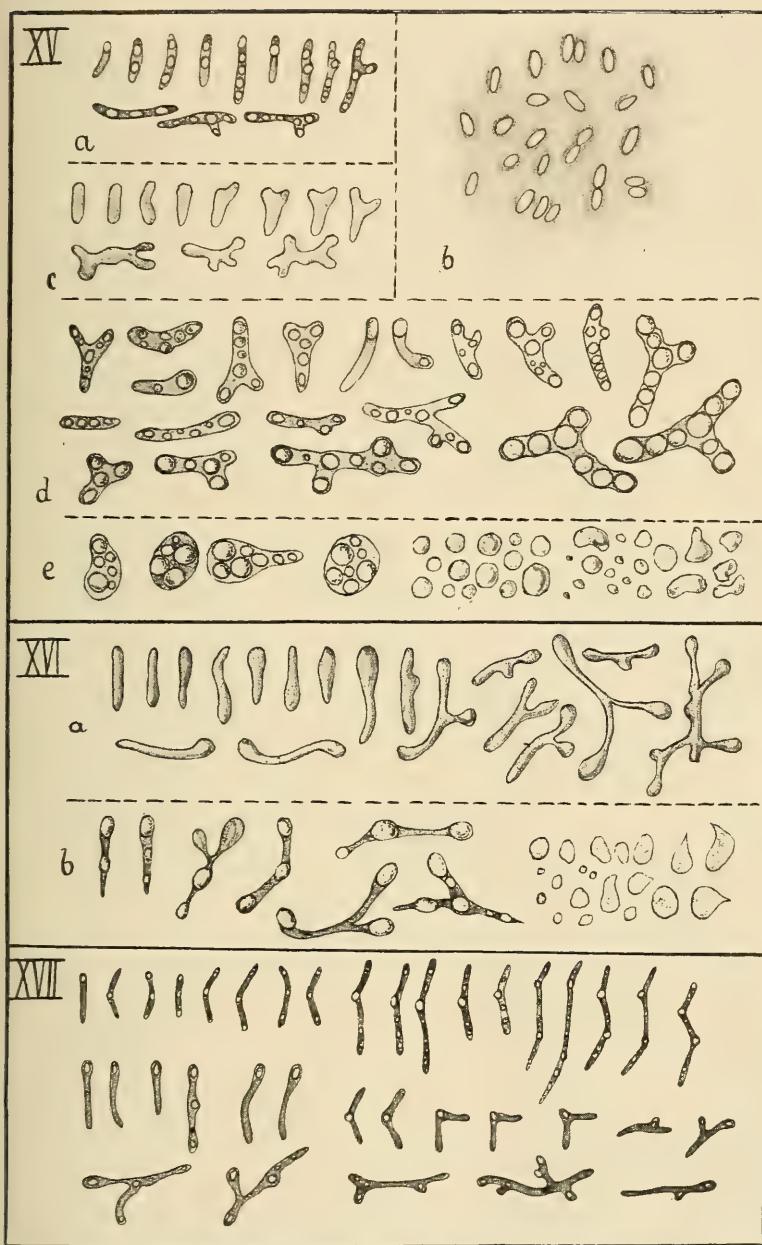 XV
a
b
c
d
e
XVI
a
b
XVII